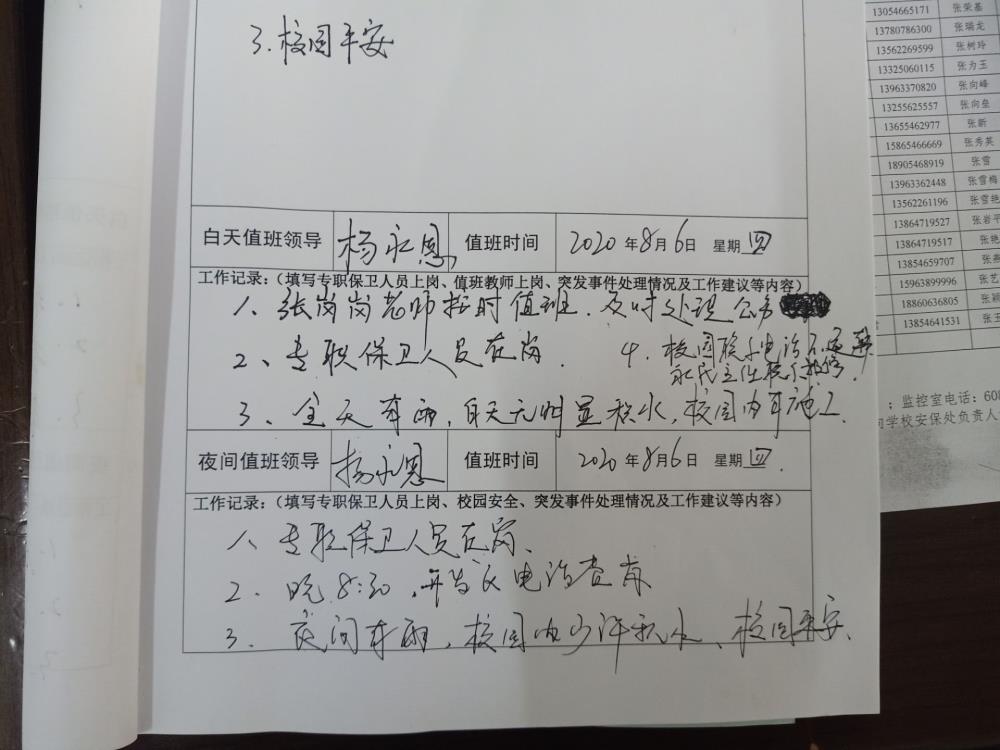 3.校园平安
白天值班领导 杨永恩 值班时间 2020年8月6日 星期四
工作记录：（填写专职保卫人员上岗、值班教师上岗、突发事件处理情况及工作建议等内容）
1、张岗岗老师按时值班.及时处理公务
2、专职保卫人员在岗.
4.校园联系电话
3、全天有雨,白天无明显积水,校园内有施工.
夜间值班领导 杨永恩 值班时间 2020年8月6日 星期四.
工作记录：（填写专职保卫人员上岗、校园安全、突发事件处理情况及工作建议等内容）
1、专职保卫人员在岗、
2、晚8:30,电话查岗
3、夜间有雨,校园内少许积水、校园平安、
13054665171 张荣基
13780786300 张瑞龙
13562269599 张树玲
13325060115 张为玉
13963370820 张向峰
13255625557 张向垒
13655462977 张新
15865466669 张秀英
18905468919 张雪
13963362448 张雪梅
13562261196 张雪艳
13864719527 张岩平
13864719517 张艳
13854659707 张燕
15963899996 张艺
18860636805 张颖
13854641531 张玉
；监控室电话：608
向学校安保处负责人